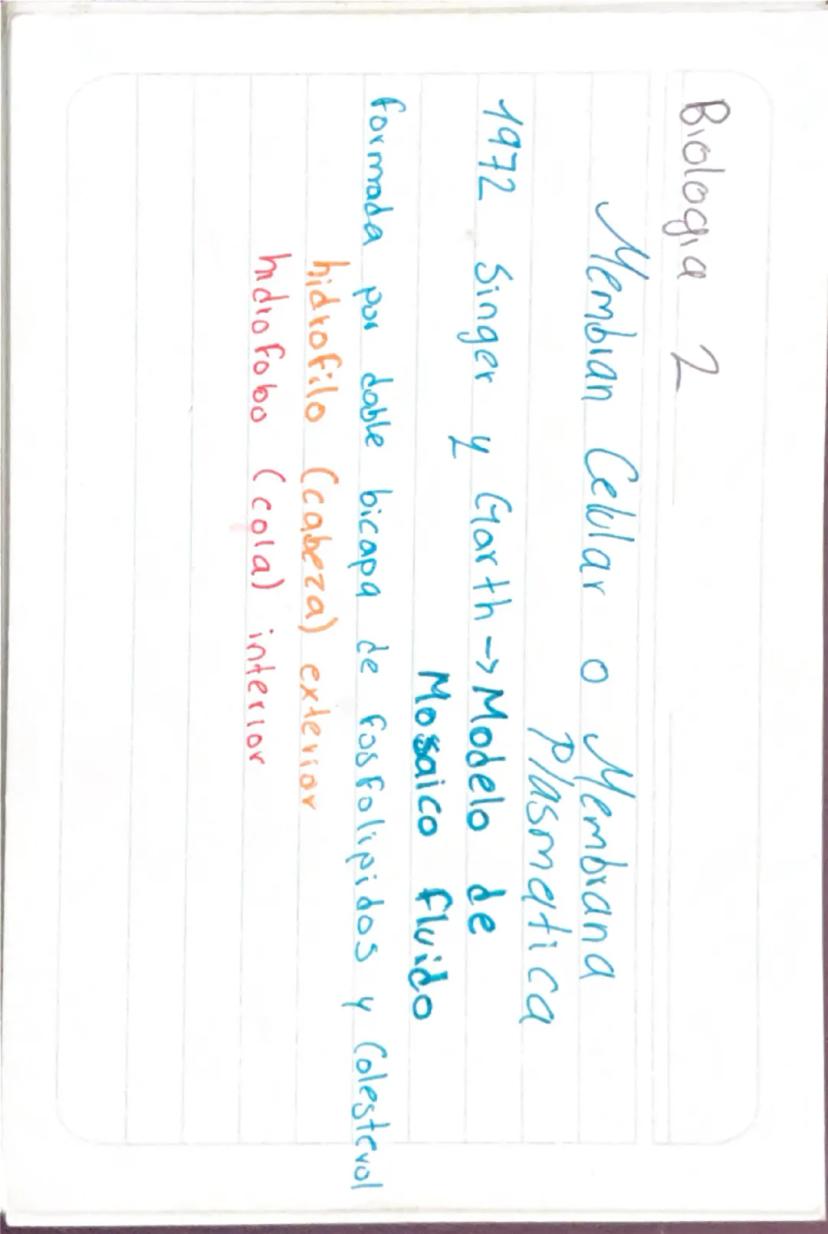 Biologia 2
Membran Celular o Membrana
Plasmatica
1972 Singer y Garth → Modelo de
Mosaico fluido
formada por doble bicapa de fosfolipidos y Colesterol
hidrofilo (cabeza) exterior
hidrofobo (cola) interior